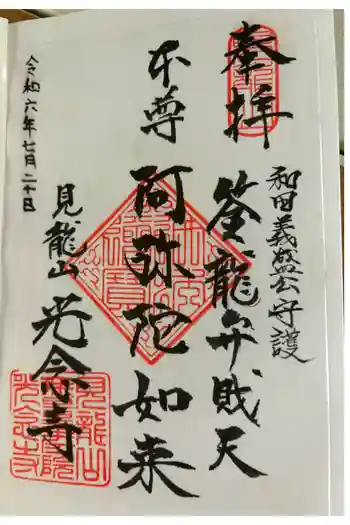 奉拝
和田義盛公守護
筌龍弁賎天
本尊
阿弥陀如来
見龍山
光念寺
令和六年七月二十日